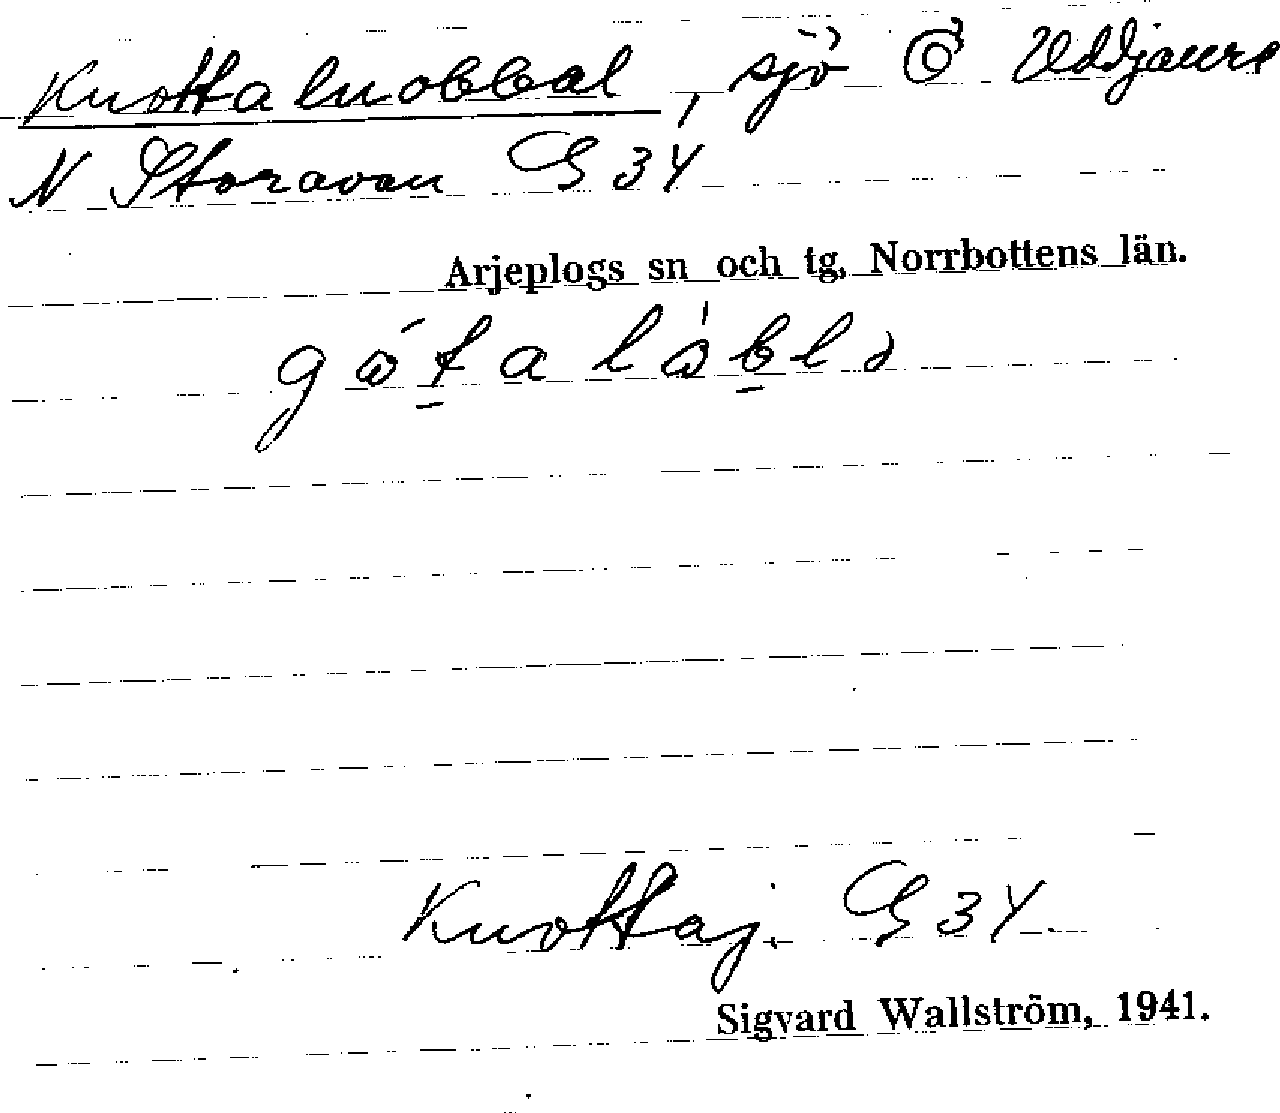 Kuottaluobbal, sjö Ö Uddjaure
N Storavan G 34
Arjeplogs sn och tg, Norrbottens län.
Kuottaj. G 34.
Sigvard Wallström, 1941.